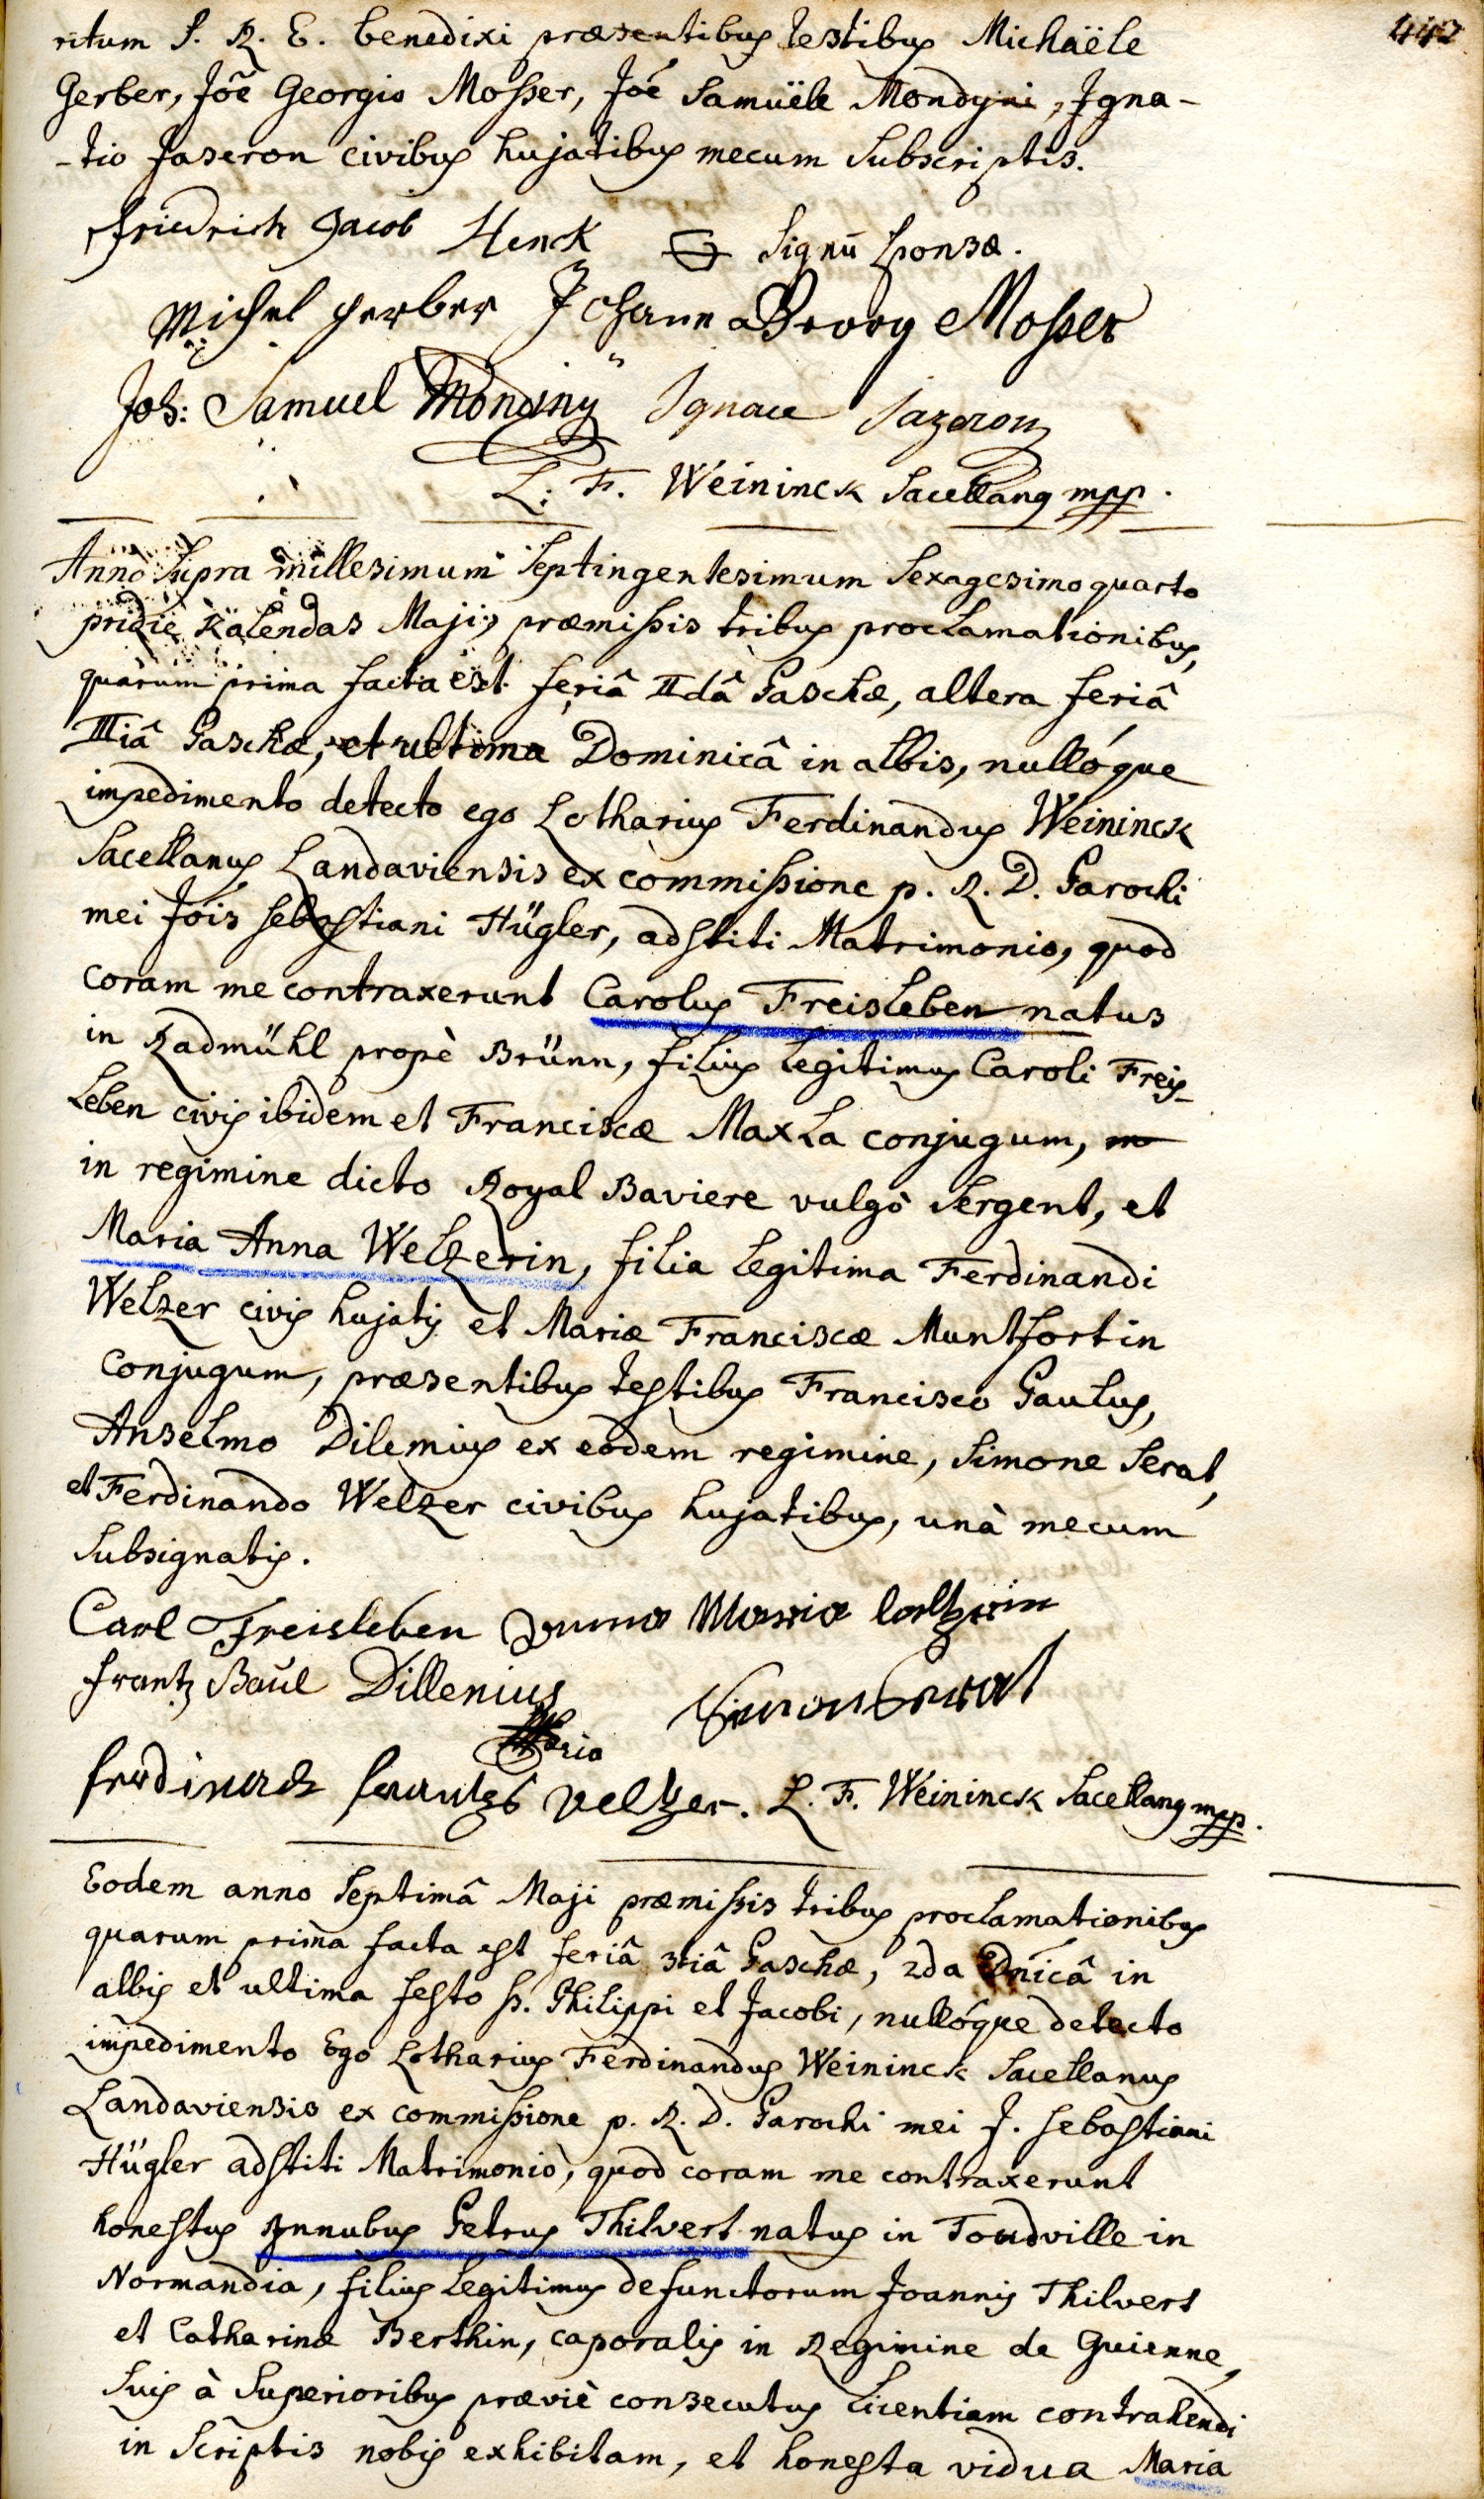 442
ritum S. R. E. benedixi præsentibus testibus Michaële
Gerber, Jôe Georgio Mosser, Jôe Samuële Mondyni, Igna-
-tio Jaseron civibus hujatibus mecum Subscriptis.
Friedrich Jacob Henck Signū Sponsæ.
Michel gerber Johann Georg Mosser
Joh: Samuel Mondiny Ignace Jazeron
L: F. Weininck Sacellanus mpp.
Anno Supra millesimum Septingentesimum Sexagesimo quarto
pridie Kalendas Maji, præmissis tribus proclamationibus,
quarum prima facta est feriâ IIdâ Paschæ, altera feriâ
IIIiâ Paschæ, et ultima Dominicâ in albis, nullóque
impedimento detecto ego Lotharius Ferdinandus Weininck
Sacellanus Landaviensis ex commissione p. R. D. Parochi
mei Jois Sebastiani Hügler, adstiti Matrimonio, quod
coram me contraxerunt Carolus Freisleben natus
in Radmühl propè Brünn, filius legitimus Caroli Freis-
leben civis ibidem et Franciscæ MaxLa conjugum,
in regimine dicto Royal Baviere vulgò Sergent, et
Maria Anna Welzerin, filia legitima Ferdinandi
Welzer civis hujatis et Mariæ Franciscæ Muntfortin
conjugum, præsentibus testibus Francisco Paulus,
Anselmo Dilemius ex eodem regimine, Simone Serat,
et Ferdinando Welzer civibus hujatibus, unà mecum
Subsignatis.
Carl Freisleben Anna Maria
Frantz Baul Dillenius Simon Serat
ferdinand frantz veltzer. L. F. Weininck Sacellanus mpp.
Eodem anno Septimâ Maji præmissis tribus proclamationibus
quarum prima facta est feriâ 3tiâ Paschæ, 2da Dnicâ in
albis et ultima festo ss. Philippi et Jacobi, nullóque detecto
impedimento Ego Lotharius Ferdinandus Weininck Sacellanus
Landaviensis ex commissione p. R. D. Parochi mei J. Sebastiani
Hügler adstiti Matrimonio, quod coram me contraxerunt
honestus Innubus Petrus Thilvert natus in Toudville in
Normandia, filius legitimus defunctorum Joannis Thilvert
et Catharinæ Berthin, caporalis in Regimine de Guienne,
Suis à Superioribus præviè consecutus licentiam contrahendi
in Scriptis nobis exhibitam, et honesta vidua Maria